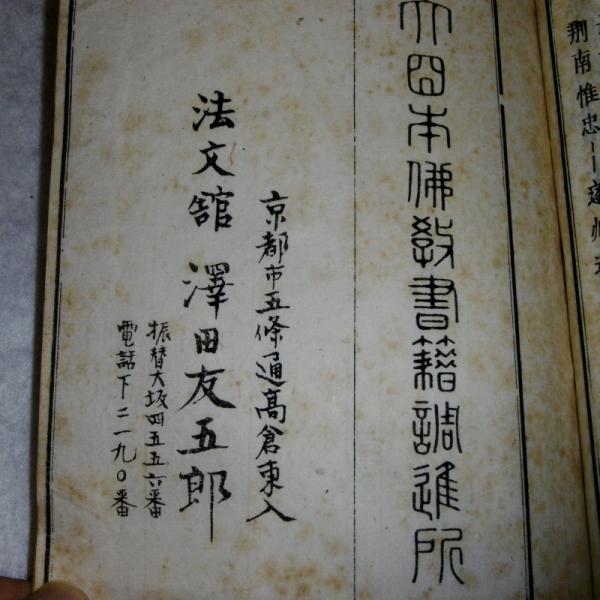 荆南惟忠
大日本佛教書籍調進所
京都市五條通高倉東入
法文舘 澤田友五郎
振替大坂四五五六番
電話下二一九〇番